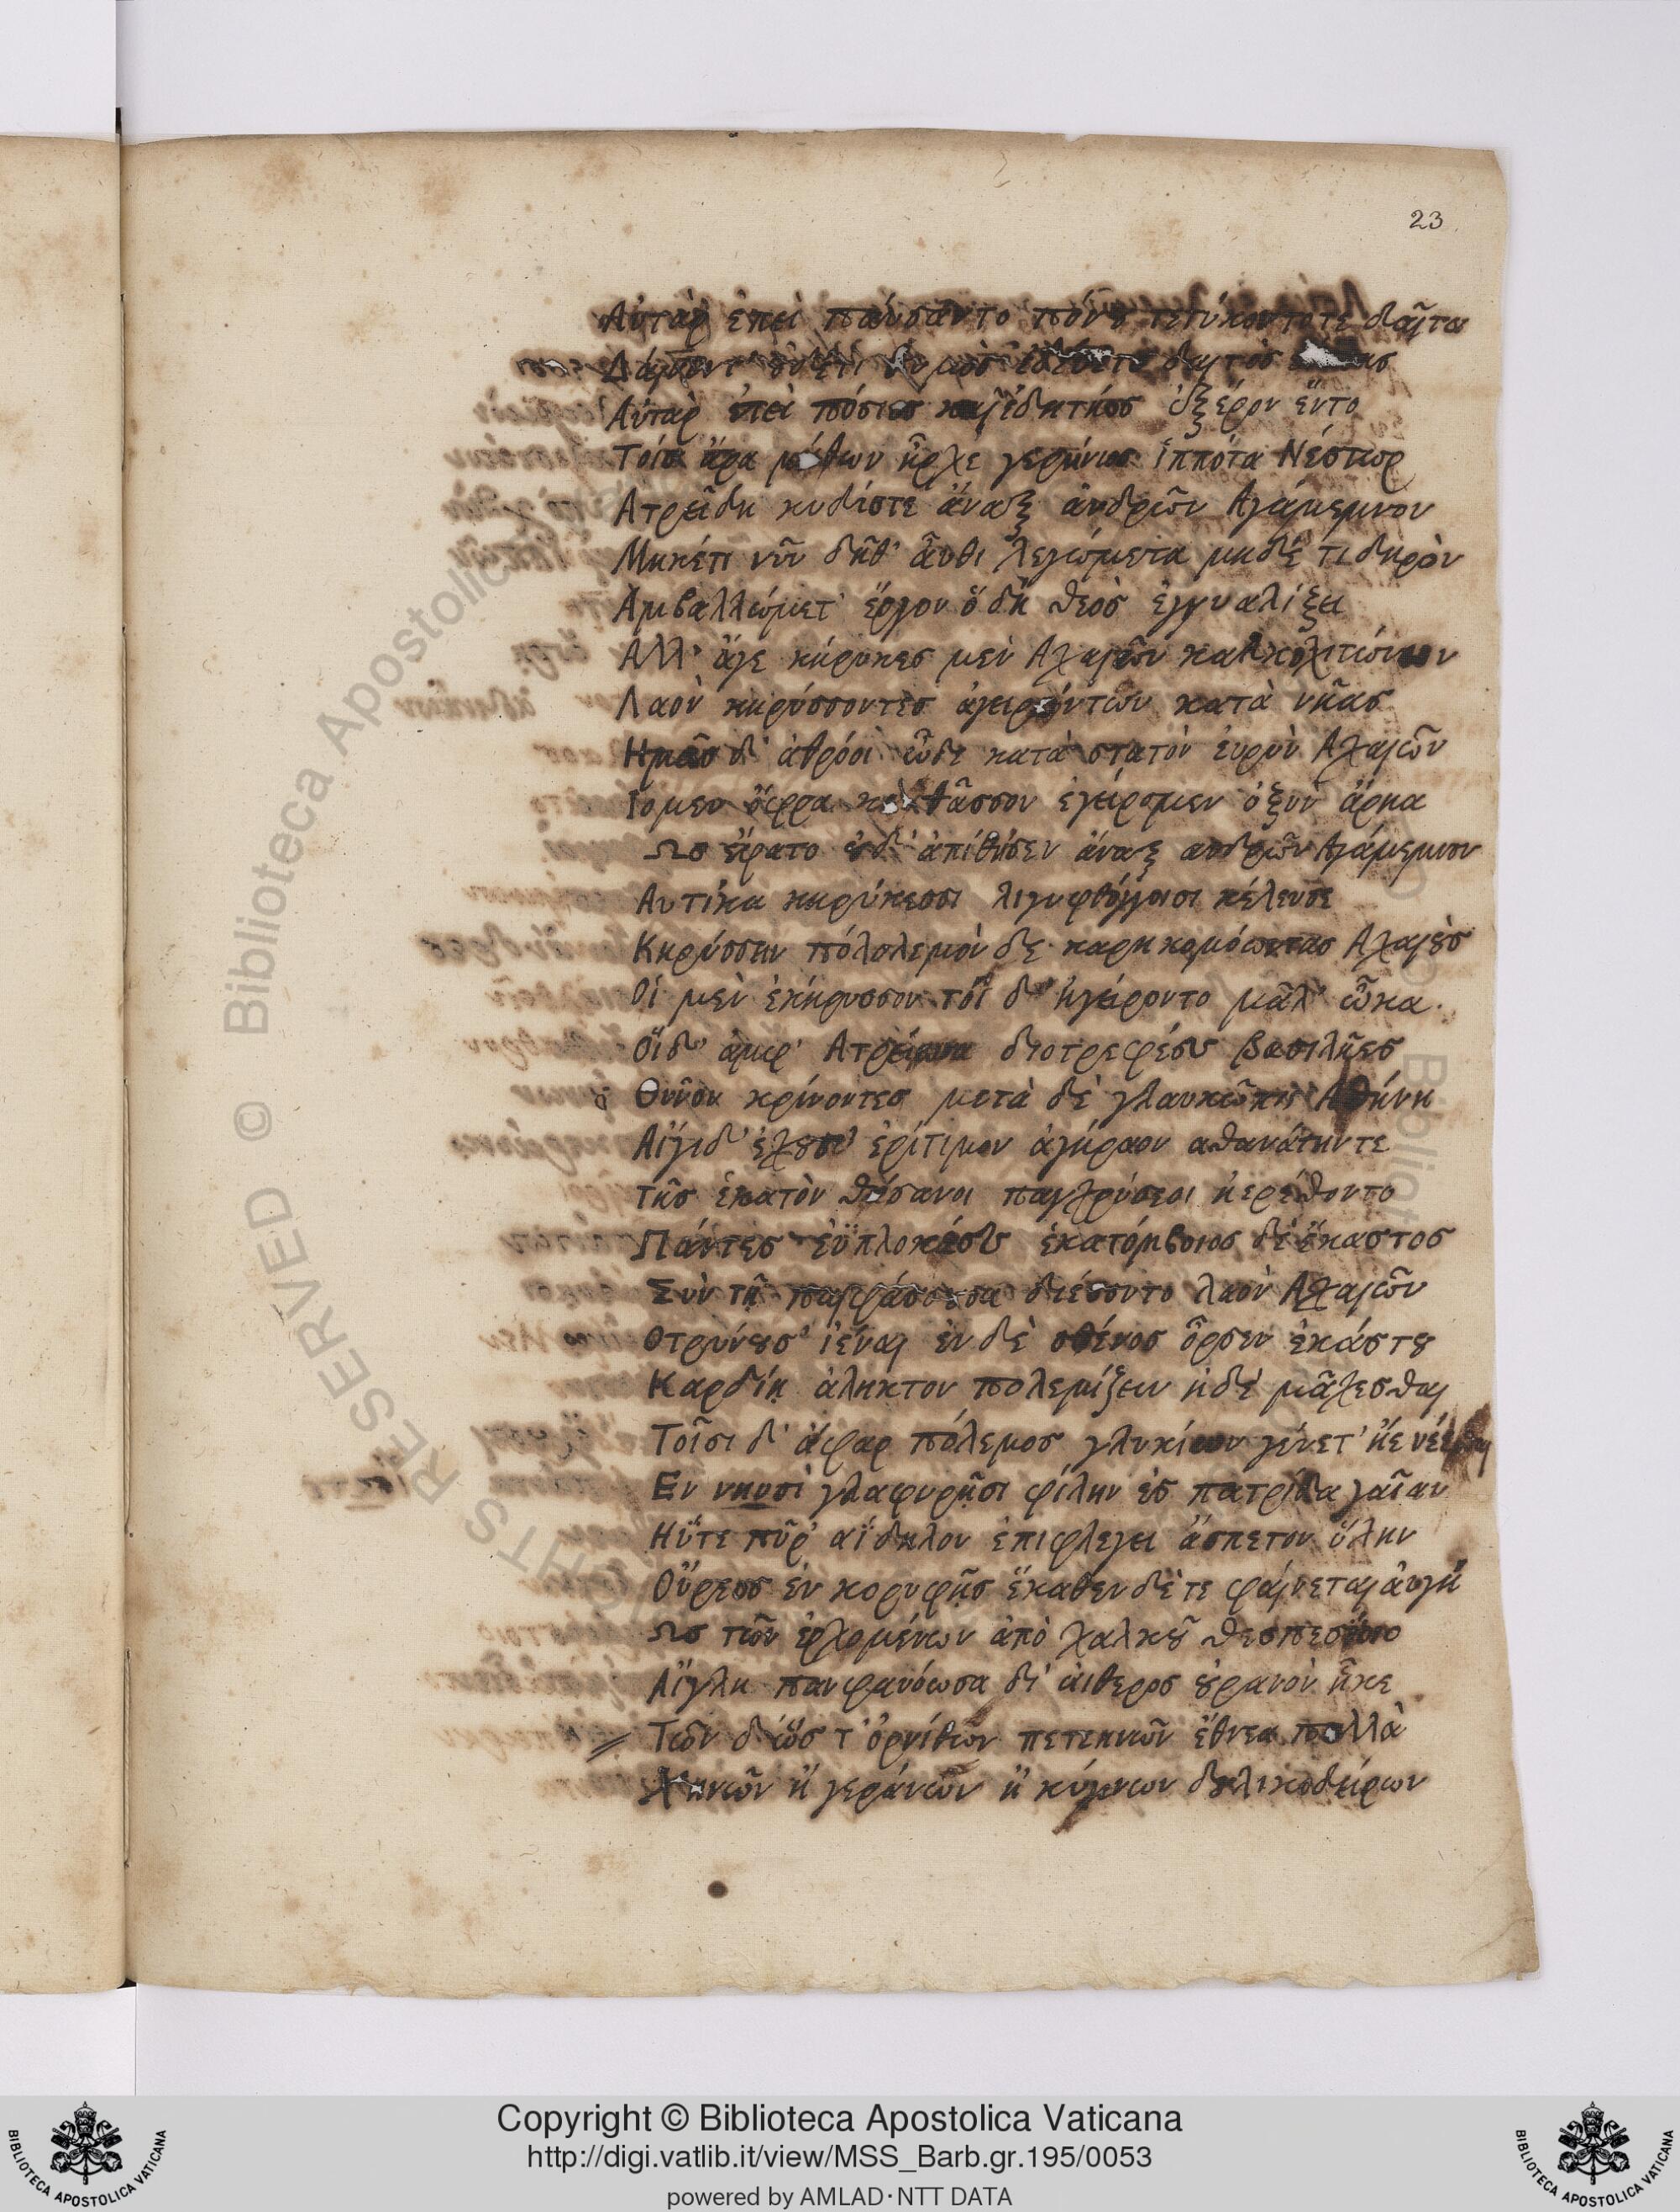 23
Αὐτὰρ ἐπεὶ παύσαντο πόνου τετύκοντοτε δαῖτα
Δαίνυντ' οὐδέτι θυμὸς ἐδεύετο δαιτὸς
Αὐτὰρ ἐπεὶ πόσιος καὶ ἐδητύος ἐξέρον ἕντο
Τοῖς ἄρα μύθων ἦρχε γερήνιος ἱππότα Νέστωρ
Ατρείδη κυδίστε ἄναξ ἀνδρῶν Αγάμεμνον
Μηκέτι νῦν δῆθ' αὖθι λεγώμετα μηδέ τι δηρὸν
Αμβαλλώμετ' ἔργον ὅ δὴ θεὸς ἐγγυαλίξει
Αλλ' ἄγε κήρυκες μὲν Αχαιῶν
Λαὸν κηρύσσοντες ἀγειρόντων κατὰ νῆας
Ημεῖς δ' ἀθρόοι ὧδε κατὰ στατὸν εὐρὺν Αχαιῶν
Ιομεν ὄφρα κε θᾶσσον ἐγείρομεν ὀξὺν ἄρηα
Ως ἔφατο οὐδ' ἀπίθησεν ἄναξ ανδρῶν Αγάμεμνον
Αυτίκα κηρύκεσσι λιγυφθόγγοισι κέλευσε
Κηρύσσειν πόλολεμὸν δε καρηκομόωντας Αχαιοὺς
Οἱ μὲν ἐκήρυσσον τοὶ δ' ἠγείροντο μᾶλ' ὦκα.
Οἵδ' ἀμφ' Ατρείωνα διοτρεφέες βασιλῆες
Θῦνον κρίνοντες μετὰ δὲ γλαυκῶπις Αθήνη
Αἰγιδ' ἔχουσ' ἐρίτιμον ἀγήραον αθανάτηντε
τῆς ἑκατὸν θύσανοι παγχρύσεοι ἠερέθοντο
Πάντες ἐϋπλοκέες ἑκατόμβοιος δὲ ἕκαστος
Σὺν τῇ παιφάσσουσα διέσσυτο λαὸν Αχαιῶν
Οτρύνουσ' ἰέναι ἐν δὲ σθένος ὦρσεν ἑκάστου
Καρδίῃ ἀληκτον πολεμίζειν ἠδὲ μᾶχεσθαι
Τοῖσι δ' ἄφαρ πόλεμος γλυκίων γένετ' ἠὲ νέεσθαι
Εν νηυσὶ γλαφυρῇσι φίλην ἐς πατρίδα γαῖαν
Ηΰτε πῦρ αΐδηλον ἐπιφλεγει ἄσπετον ὕλην
Οὔρεος ἐν κορυφῇς ἕκαθεν δέ τε φαίνεται αὐγή
Ως τῶν ἐρχομένων ἀπὸ χαλκοῦ θεσπεσίοιο
Αἴγλη πανφανόωσα δι' αἰθερος οὐρανὸν ἧκε
Τῶν δ' ὥς τ' ὀρνίθων πετεηνῶν ἔθνεα πολλὰ
Χηνῶν ἢ γεράνων ἢ κύκνων δουλικοδείρων
© Biblioteca Apostolica Vaticana
RIGHTS RESERVED
Copyright © Biblioteca Apostolica Vaticana
http://digi.vatlib.it/view/MSS_Barb.gr.195/0053
powered by AMLAD·NTT DATA
BIBLIOTECA APOSTOLICA VATICANA
BIBLIOTECA APOSTOLICA VATICANA